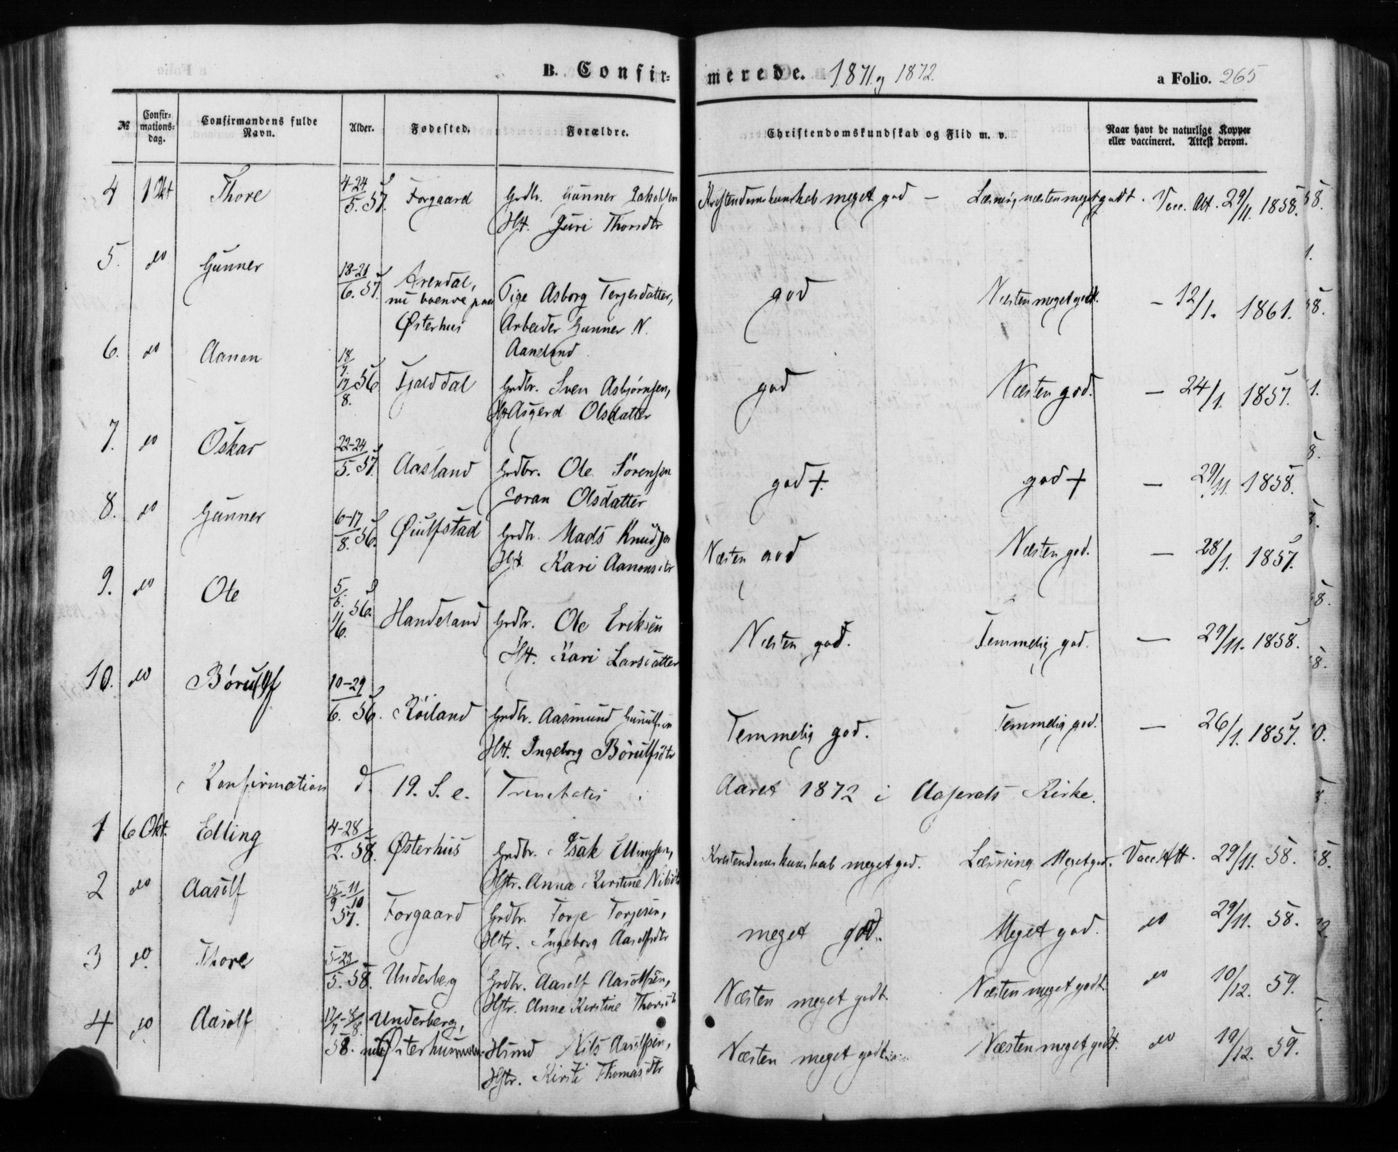 B. Confir-
merede. 1871 og 1872
a Folio. 265
№
Confir-
mations-
dag.
Confirmandens fulde
Navn.
Alder.
Fødested.
Forældre.
Christendomskundskab og Flid m. v.
Naar havt de naturlige Kopper
eller vaccineret. Attest derom.
4 Thore 4-24/5. 57. Forgaard Grdbr. Gunner Jakobsen Kristendomskunskab meget god — Læsning næsten meget godt. Vacc. Att. 29/11 1858.
Hst. Guri Thorsdtr
5. do Gunner 18-21/6. 57. Arendal, Pige Asborg Terjesdatter, god Næsten meget godt. — 12/1. 1861.
nu boende paa Arbeider Gunner N.
Østerhus Aaneland
6. do Aanon 18/7. 17/8. 56 Fjalddal Grdbr. Sven Asbjørnsen, god Næsten god. — 24/1. 1857.
Hst Asgerd Olsdatter
7. do Oskar 22-24/5. 57 Aasland Grdbr. Ole Sørensen god +. god + — 29/11. 1858.
Goran Olsdatter
8. do Gunner 6-17/8. 56. Øiulfstad Grdbr. Mads Knudsen Næsten god Næsten god. — 28/1. 1857.
Hst. Kari Aanonsdtr
9. do Ole 56. Handeland Grdbr. Ole Eriksen Næsten god. Temmelig god. — 29/11. 1858.
Hst. Kari Larsdatter
10. do Børulf 10-29/6. 56. Røiland Grdbr. Aasmund Temmelig god. Temmelig god. — 26/1. 1857.
Hst. Ingeborg Børulfsdtr
Konfirmation d. 19. S. e. Trinitatis Aaret 1872 i Aaserals Kirke.
1 6 Okt. Elling 4-28/2. 58. Østerhus Grdbr. Isak Ellingsen, Kristendomskunskab meget god. Læsning Meget god. Vacc Att. 29/11. 58.
Hstr. Anna Kirstine
2 do Aasulf 15/9-11/10 57. Forgaard Grdbr. Torje Torjesen, meget god. Meget god. do 29/11. 58.
Hstr. Ingeborg Aasulfsdtr
3 do. Thore 5-23/5. 58. Underberg Grdbr. Aasulf Aasulfsen, Næsten meget godt Næsten meget godt do 10/12. 59.
Hstr. Anne Kirstine
4 do Aasulf 58. Underberg, Husmd Nils Aasulfsen, Næsten meget godt Næsten meget godt. do 19/12. 59.
Østerhus Hstr. Kirsti Thomasdtr